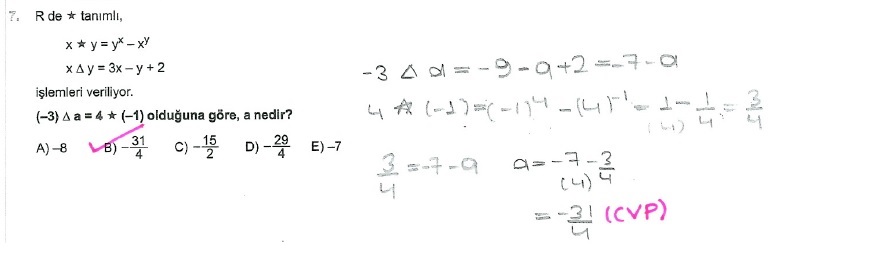 7. R de ★ tanımlı,
x ★ y = yˣ – xʸ
x Δ y = 3x – y + 2
işlemleri veriliyor.
(–3) Δ a = 4 ★ (–1) olduğuna göre, a nedir?
A) –8 B) –31/4 C) –15/2 D) –29/4 E) –7
-3 Δ a = -9 - a + 2 = -7 - a
4 ☆ (-1) = (-1)⁴ - (4)⁻¹ = 1 - 1/4 = 3/4
(4)
3/4 = -7 - a a = -7 - 3/4
(4)
= -31/4 (CVP)